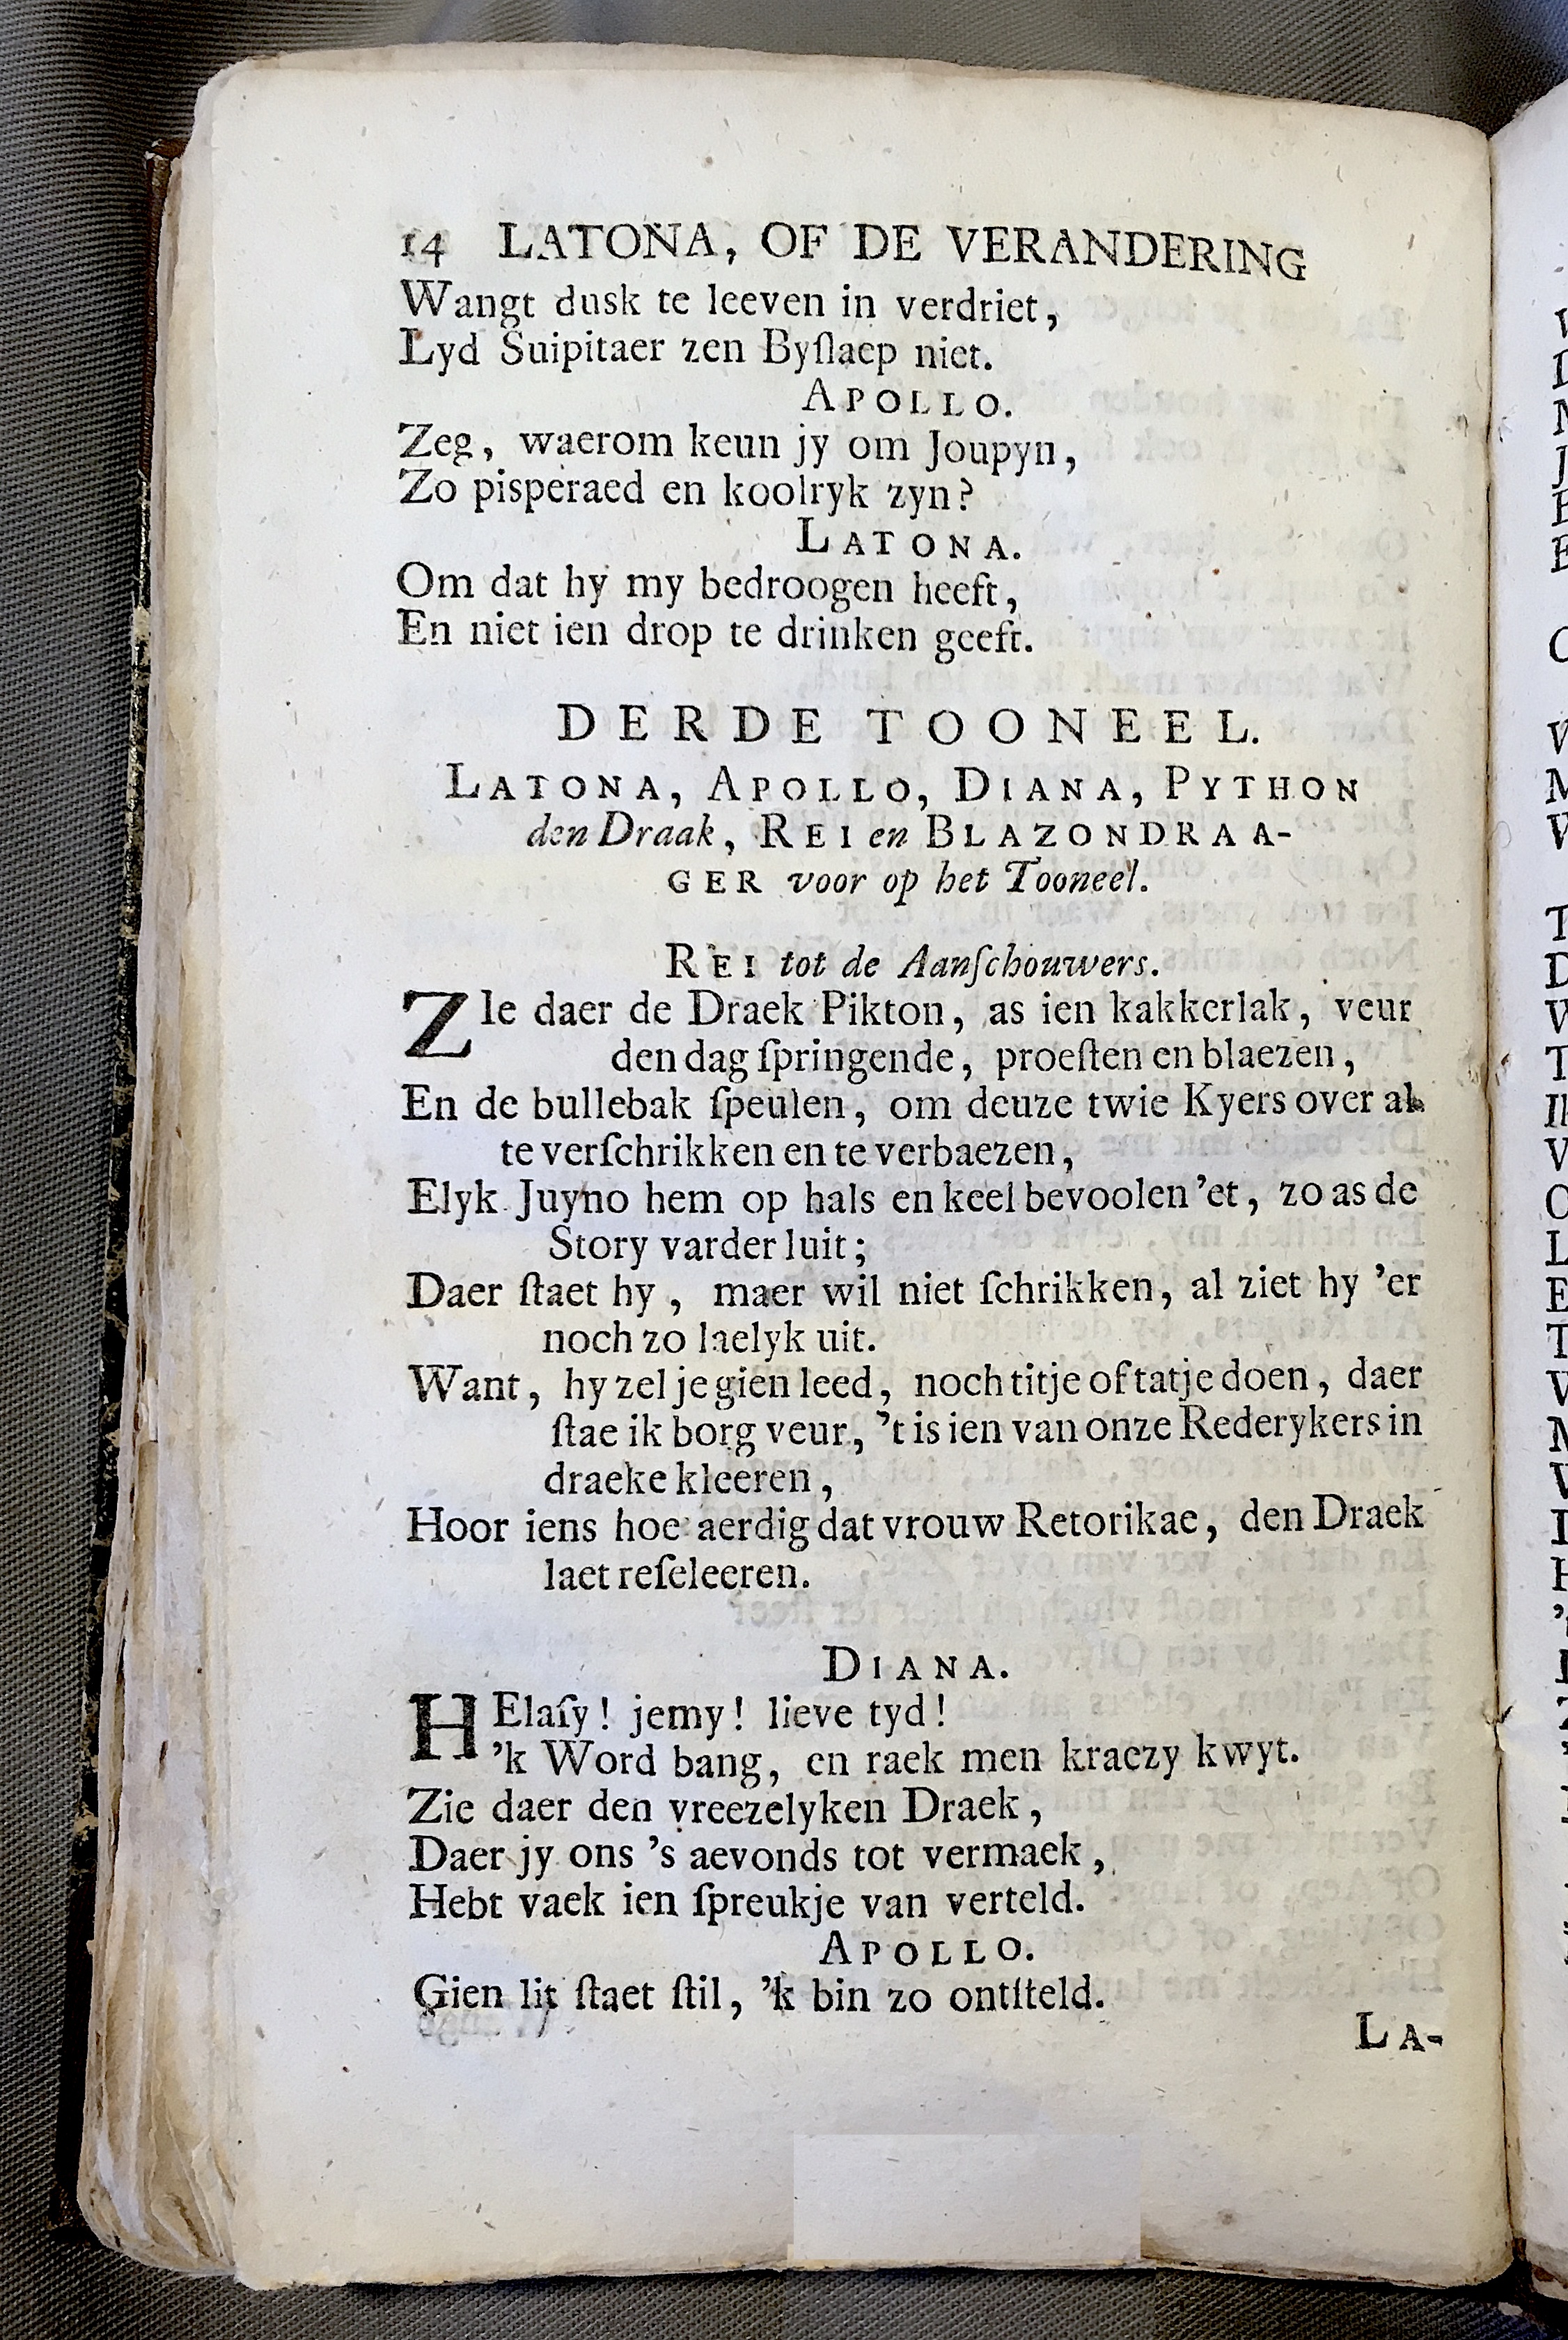 14 LATONA, OF DE VERANDERING
Wangt dusk te leeven in verdriet,
Lyd Suipitaer zen Byſlaep niet.
APOLLO.
Zeg, waerom keun jy om Joupyn,
Zo pisperaed en koolryk zyn?
LATONA.
Om dat hy my bedroogen heeft,
En niet ien drop te drinken geeft.
DERDE TOONEEL.
LATONA, APOLLO, DIANA, PYTHON
den Draak, REI en BLAZONDRAA-
GER voor op het Tooneel.
REI tot de Aanſchouwers.
ZIe daer de Draek Pikton, as ien kakkerlak, veur
den dag ſpringende, proeſten en blaezen,
En de bullebak ſpeulen, om deuze twie Kyers over al
te verſchrikken en te verbaezen,
Elyk Juyno hem op hals en keel bevoolen 'et, zo as de
Story varder luit;
Daer ſtaet hy, maer wil niet ſchrikken, al ziet hy 'er
noch zo laelyk uit.
Want, hy zel je gien leed, noch titje of tatje doen, daer
ſtae ik borg veur, 't is ien van onze Rederykers in
draeke kleeren,
Hoor iens hoe aerdig dat vrouw Retorikae, den Draek
laet reſeleeren.
DIANA.
HElaſy! jemy! lieve tyd!
'k Word bang, en raek men kraezy kwyt.
Zie daer den vreezelyken Draek,
Daer jy ons 's aevonds tot vermaek,
Hebt vaek ien ſpreukje van verteld.
APOLLO.
Gien lit ſtaet ſtil, 'k bin zo ontſteld.
LA-